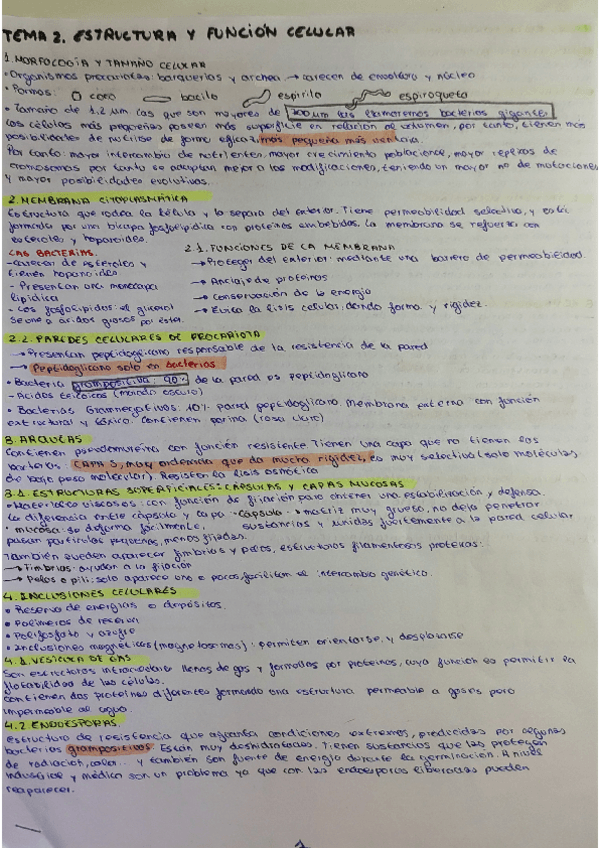 TEMA 2. ESTRUCTURA Y FUNCIÓN CELULAR
1. MORFOLOGÍA Y TAMAÑO CELULAR
• Organismos procariotas: bacterias y archea → carecen de envoltura y núcleo
• Formas: coco bacilo espirilo espiroqueta
• Tamaño de 1.2 µm las que son mayores de 700 µm las llamaremos bacterias gigantes
Las células más pequeñas poseen más superficie en relación al volumen, por tanto, tienen más
posibilidades de nutrirse de forma eficaz: más pequeña más ventaja.
Por tanto: mayor intercambio de nutrientes, mayor crecimiento poblacional, mayor
cromosomas por tanto se adaptan mejor a las modificaciones, teniendo un mayor nº de mutaciones
y mayor posibilidades evolutivas.
2. MEMBRANA CITOPLASMÁTICA
Estructura que rodea la célula y la separa del exterior. Tiene permeabilidad selectiva, y está
formada por una bicapa fosfolipídica con proteínas embebidas. La membrana se refuerza con
esteroles y hopanoides.
LAS BACTERIAS.
- carecen de esteroles y
tienen hopanoides
- Presentan una monocapa
lipídica
- Los fosfolípidos: el glicerol
se une a ácidos grasos por éster.
2.1. FUNCIONES DE LA MEMBRANA
→ Proteger del exterior: mediante una barrera de permeabilidad.
→ Anclaje de proteínas
→ Conservación de la energía
→ Evita la lisis celular, dando forma y rigidez.
2.2. PAREDES CELULARES DE PROCARIOTA
→ Presentan peptidoglicano responsable de la resistencia de la pared
→ Peptidoglicano solo en bacterias
• Bacteria grampositiva: 90% de la pared es peptidoglicano
- Ácidos teicoicos (morado oscuro)
• Bacterias Gramnegativos: 10% pared peptidoglicano membrana externa con función
estructural y tóxica. Contienen porina (rosa claro)
3. ARQUEAS
Contienen pseudomureina con función resistente Tienen una capa que no tienen las
bacterias: CAPA S, muy ordenada que da mucha rigidez, es muy selectiva (solo moléculas
de bajo peso molecular). Resisten la lisis osmótica
3.1. ESTRUCTURAS SUPERFICIALES: CÁPSULAS Y CAPAS MUCOSAS
• Materiales viscosos: con función de fijación para obtener una estabilización y defensa.
La diferencia entre cápsula y capa • Cápsula • → matriz muy grueso, no deja penetrar
• mucosa: se deforma fácilmente, sustancias y unidas fuertemente a la pared celular
pasan partículas pequeñas, menos fijadas.
También pueden aparecer fimbrias y pelos, estructuras filamentosas proteicas:
→ Fimbrias: ayudan a la fijación
→ Pelos o pili: solo aparece uno o pocos, facilitan el intercambio genético.
4. INCLUSIONES CELULARES
• Reserva de energías o depósitos.
• Polímeros de reserva
• Polifosfato y azufre
• Inclusiones magnéticas (magnetosomas): permiten orientarse y desplazarse
4.1. VESÍCULA DE GAS
Son estructuras intracelulares llenas de gas y formadas por proteínas, cuya función es permitir la
flotabilidad de las células.
contienen dos proteínas diferentes formando una estructura permeable a gases pero
impermeable al agua.
4.2 ENDOESPORAS.
estructura de resistencia que aguanta condiciones extremas, producidas por algunas
bacterias grampositivas. Están muy deshidratadas. Tienen sustancias que las protegen
de radiación, calor... y también son fuente de energía durante la germinación. A nivel
industrial y médico son un problema ya que con las endoesporas liberadas pueden
reaparecer.